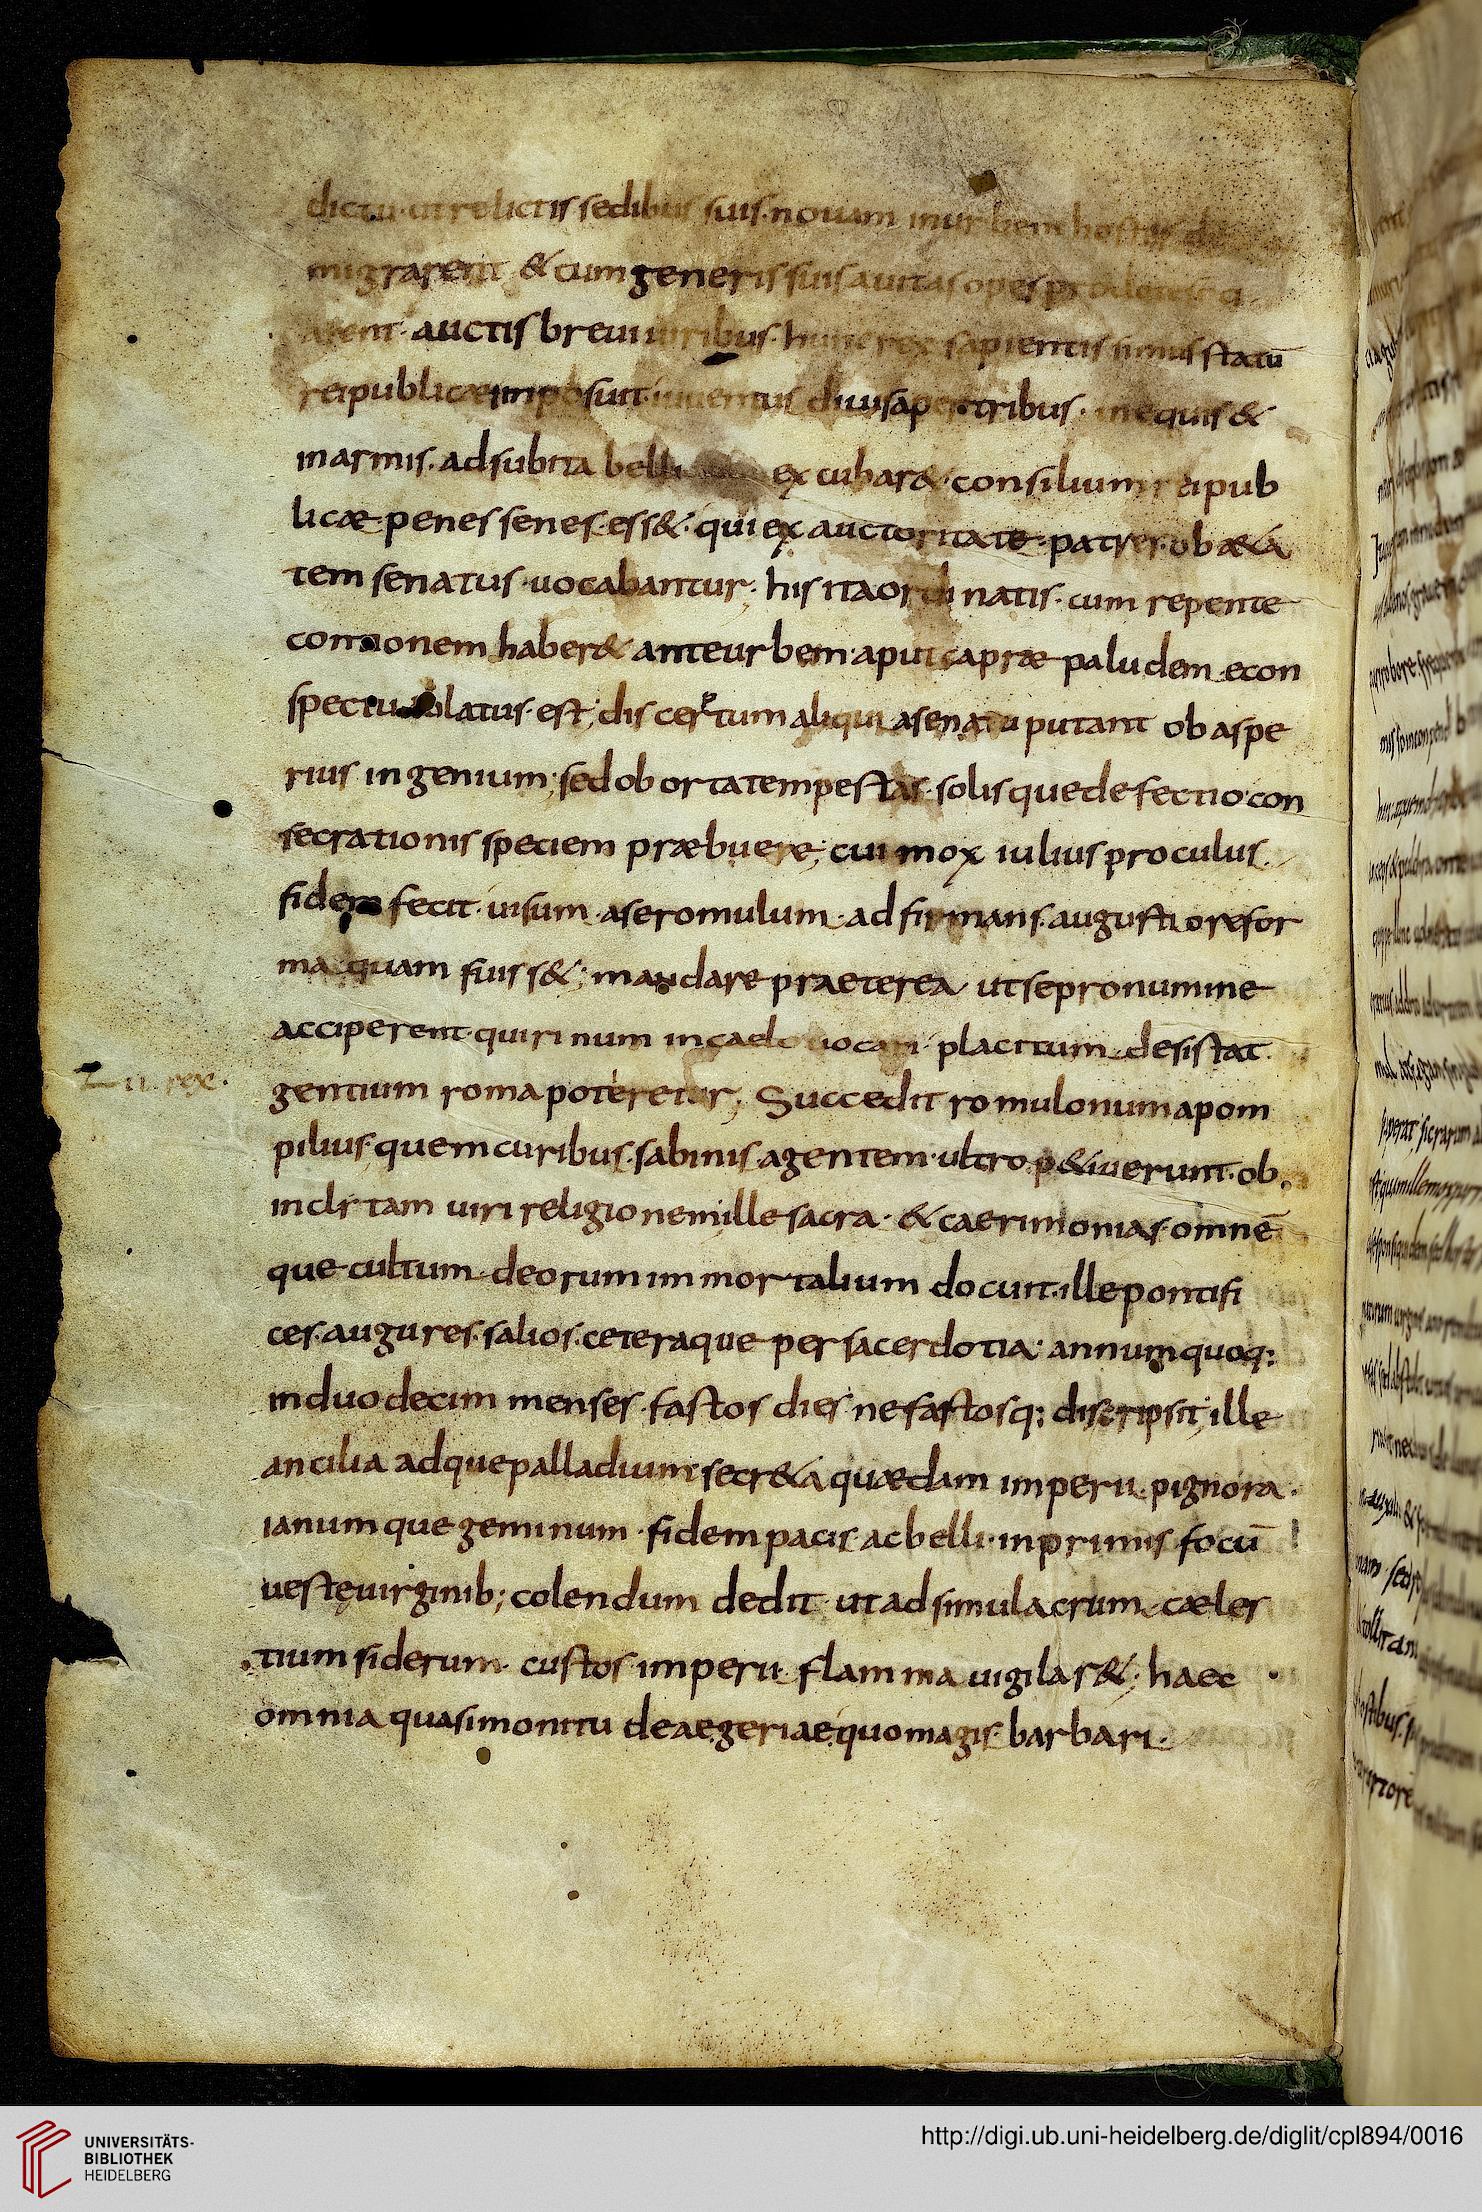 dictu· ut relictis sedibus suis· nouam in urbem hostes de
migrarent & cum generis suis auitas opes
auctis breui uiribus· hunc rex sapientissimus statū
reipublicae imposuit· iuuentus diuisa per tribus· in equis &
in armis· ad subita belli excubar&· consilium reipub
licæ penes senes· ess&· qui ex auctoritate· patres· ob æ&a
tem senatus· uocabantur· his ita ordinatis· cum repente
contionem haber& ante urbem· aput capræ paludem· econ
spectu est; discerptum aliqui asenatu putant ob aspe
rius ingenium; sed oborta tempestas· solisque defectio· con
secrationis speciem præbuere; cui mox iulius proculus·
fidem fecit· uisum· ase romulum· adfirmans· augustiore for
ma quam fuiss&; mandare praeterea ut se pro numine
acciperent· quirinum in caelo uocari· placitum· desistat·
II· rex·
gentium roma poteretur; Succedit romulo numa pom
pilius· quem curibus· sabinis· agentem· ultro p&iuerunt· ob
inclitam uiri religionem ille sacra· & caerimonias· omnē
que cultum· deorum immortalium docuit· ille pontifi
ces· augures· salios· ceteraque per sacerdotia· annum quoq;
in duodecim menses· fastos dies nefastosq; discripsit; ille
ancilia adque palladium secr&a quædam imperii· pignora·
ianumque geminum· fidem pacis· ac belli· inprimis focū
uestę uirginib; colendum dedit· ut ad simulacrum· cæles
tium siderum· custos· imperii· flamma uigilar&· haec
omnia quasi monitu deae egeriae quo magis· barbari·
UNIVERSITÄTS-
BIBLIOTHEK
HEIDELBERG
http://digi.ub.uni-heidelberg.de/diglit/cpl894/0016